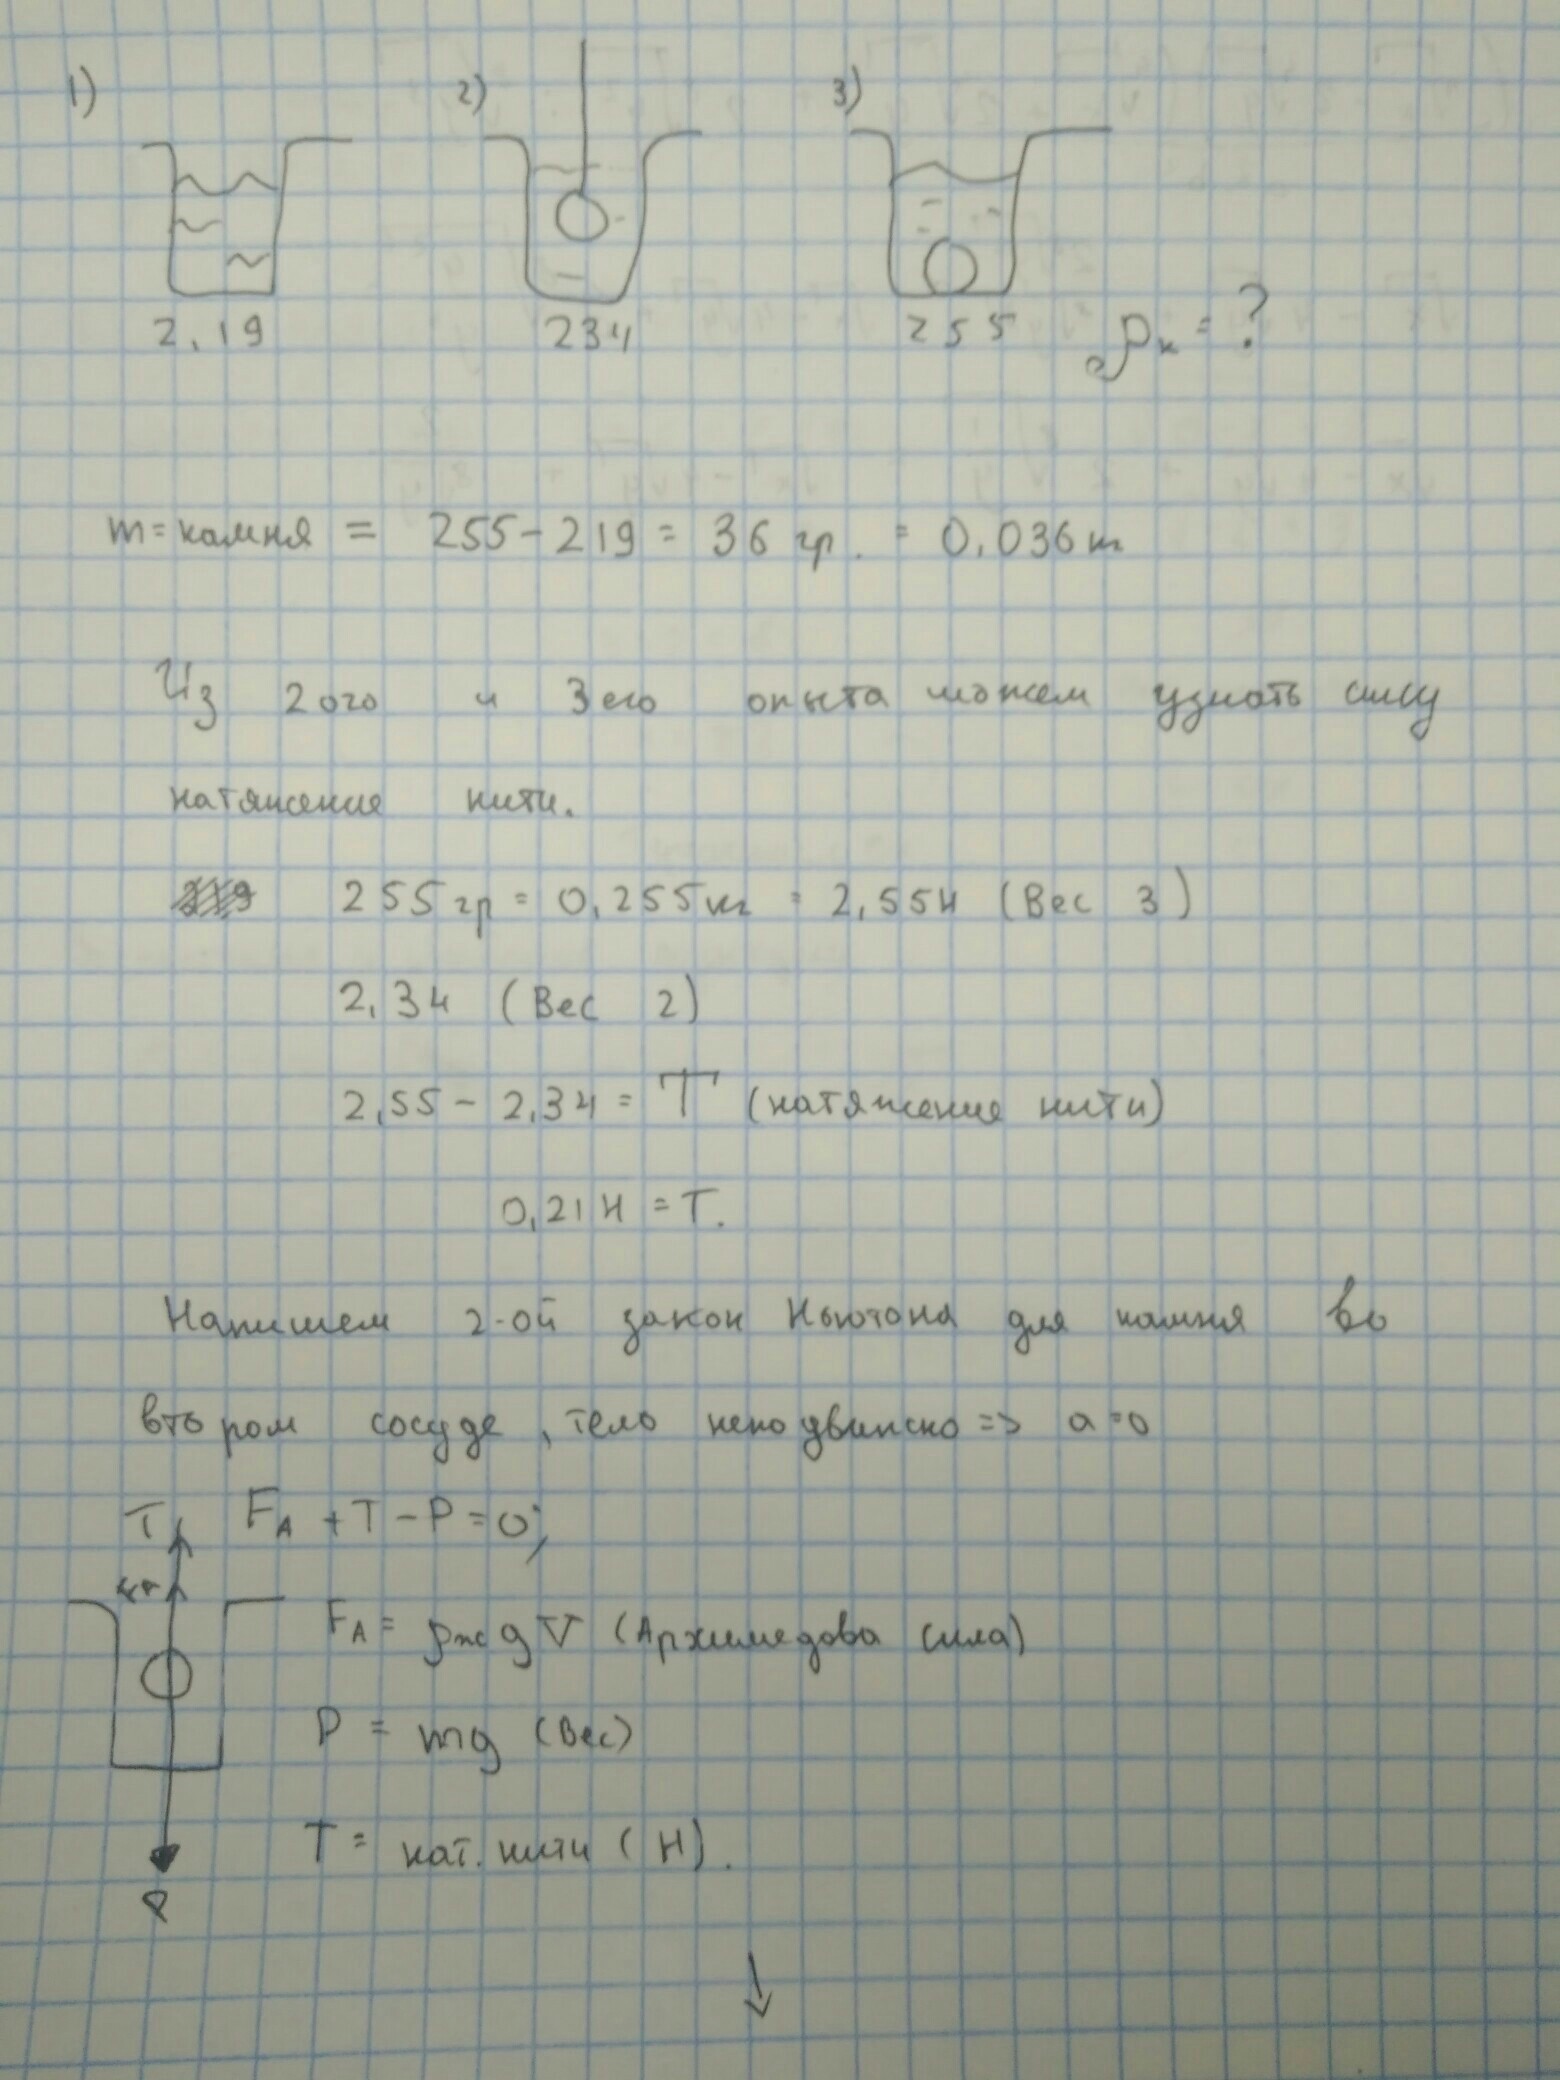 1) 2) 3)
2,19 234 255 ρк = ?
m = камня = 255 - 219 = 36 гр. = 0,036 кг
Из 2ого и 3его опыта можем узнать силу
натяжение нити.
255 гр = 0,255 кг = 2,55 Н (Вес 3)
2,34 (Вес 2)
2,55 - 2,34 = T (натяжение нити)
0,21 Н = T.
Напишем 2-ой закон Ньютона для камня во
втором сосуде, тело неподвижно => a=0
T FA + T - P = 0;
FA
FA = ρж g V (Архимедова сила)
P = mg (Вес)
T = нат. нити (Н).
P